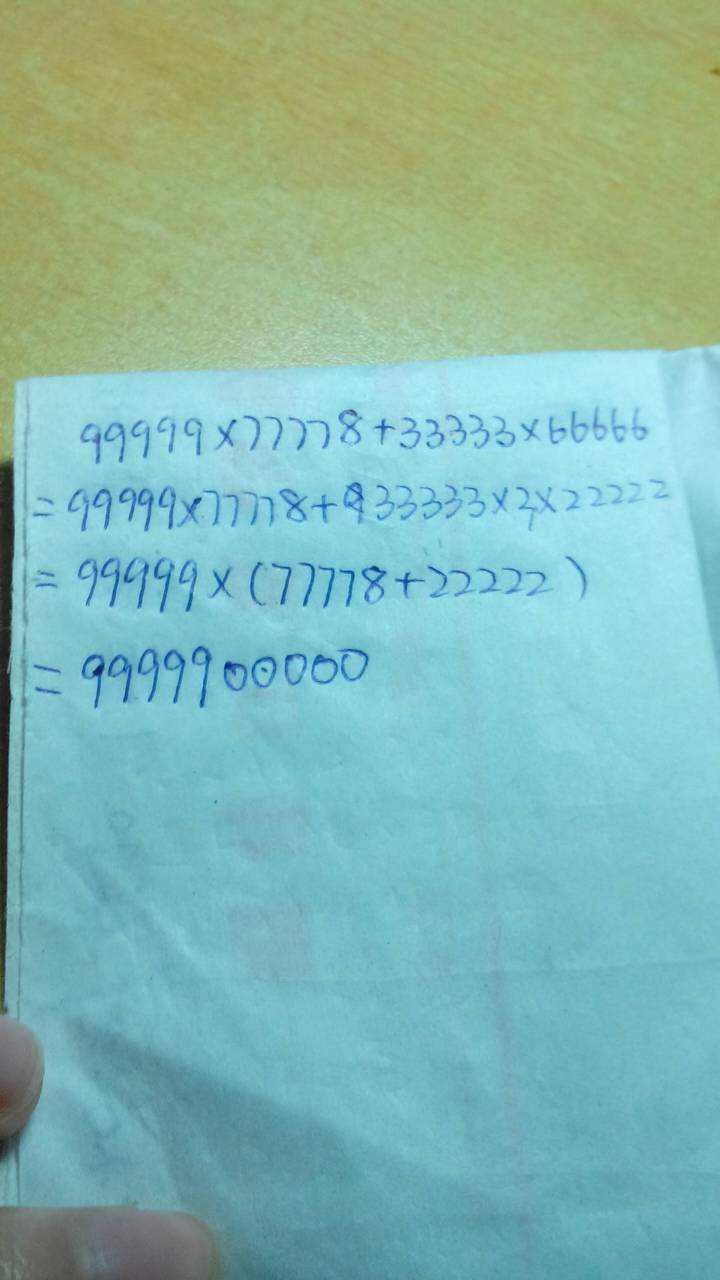 99999×77778+33333×66666
=99999×77778+33333×3×22222
=99999×(77778+22222)
=9999900000